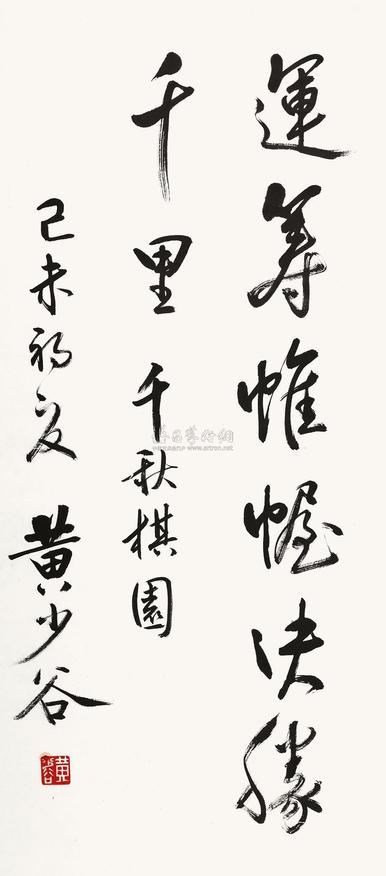 運籌帷幄決勝
千里 千秋棋園
己未初夏 黄少谷
www.artron.net